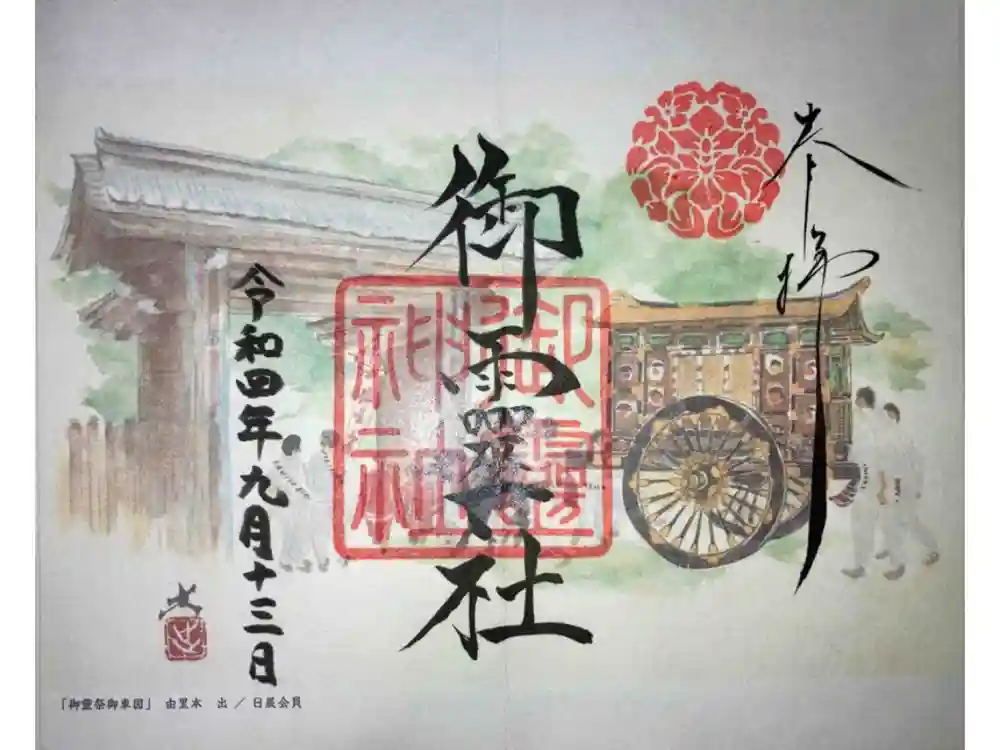 奉拝
御靈社
御靈神社
令和四年九月十三日
出
「御靈祭御車図」 由里本 出 ／ 日展会員